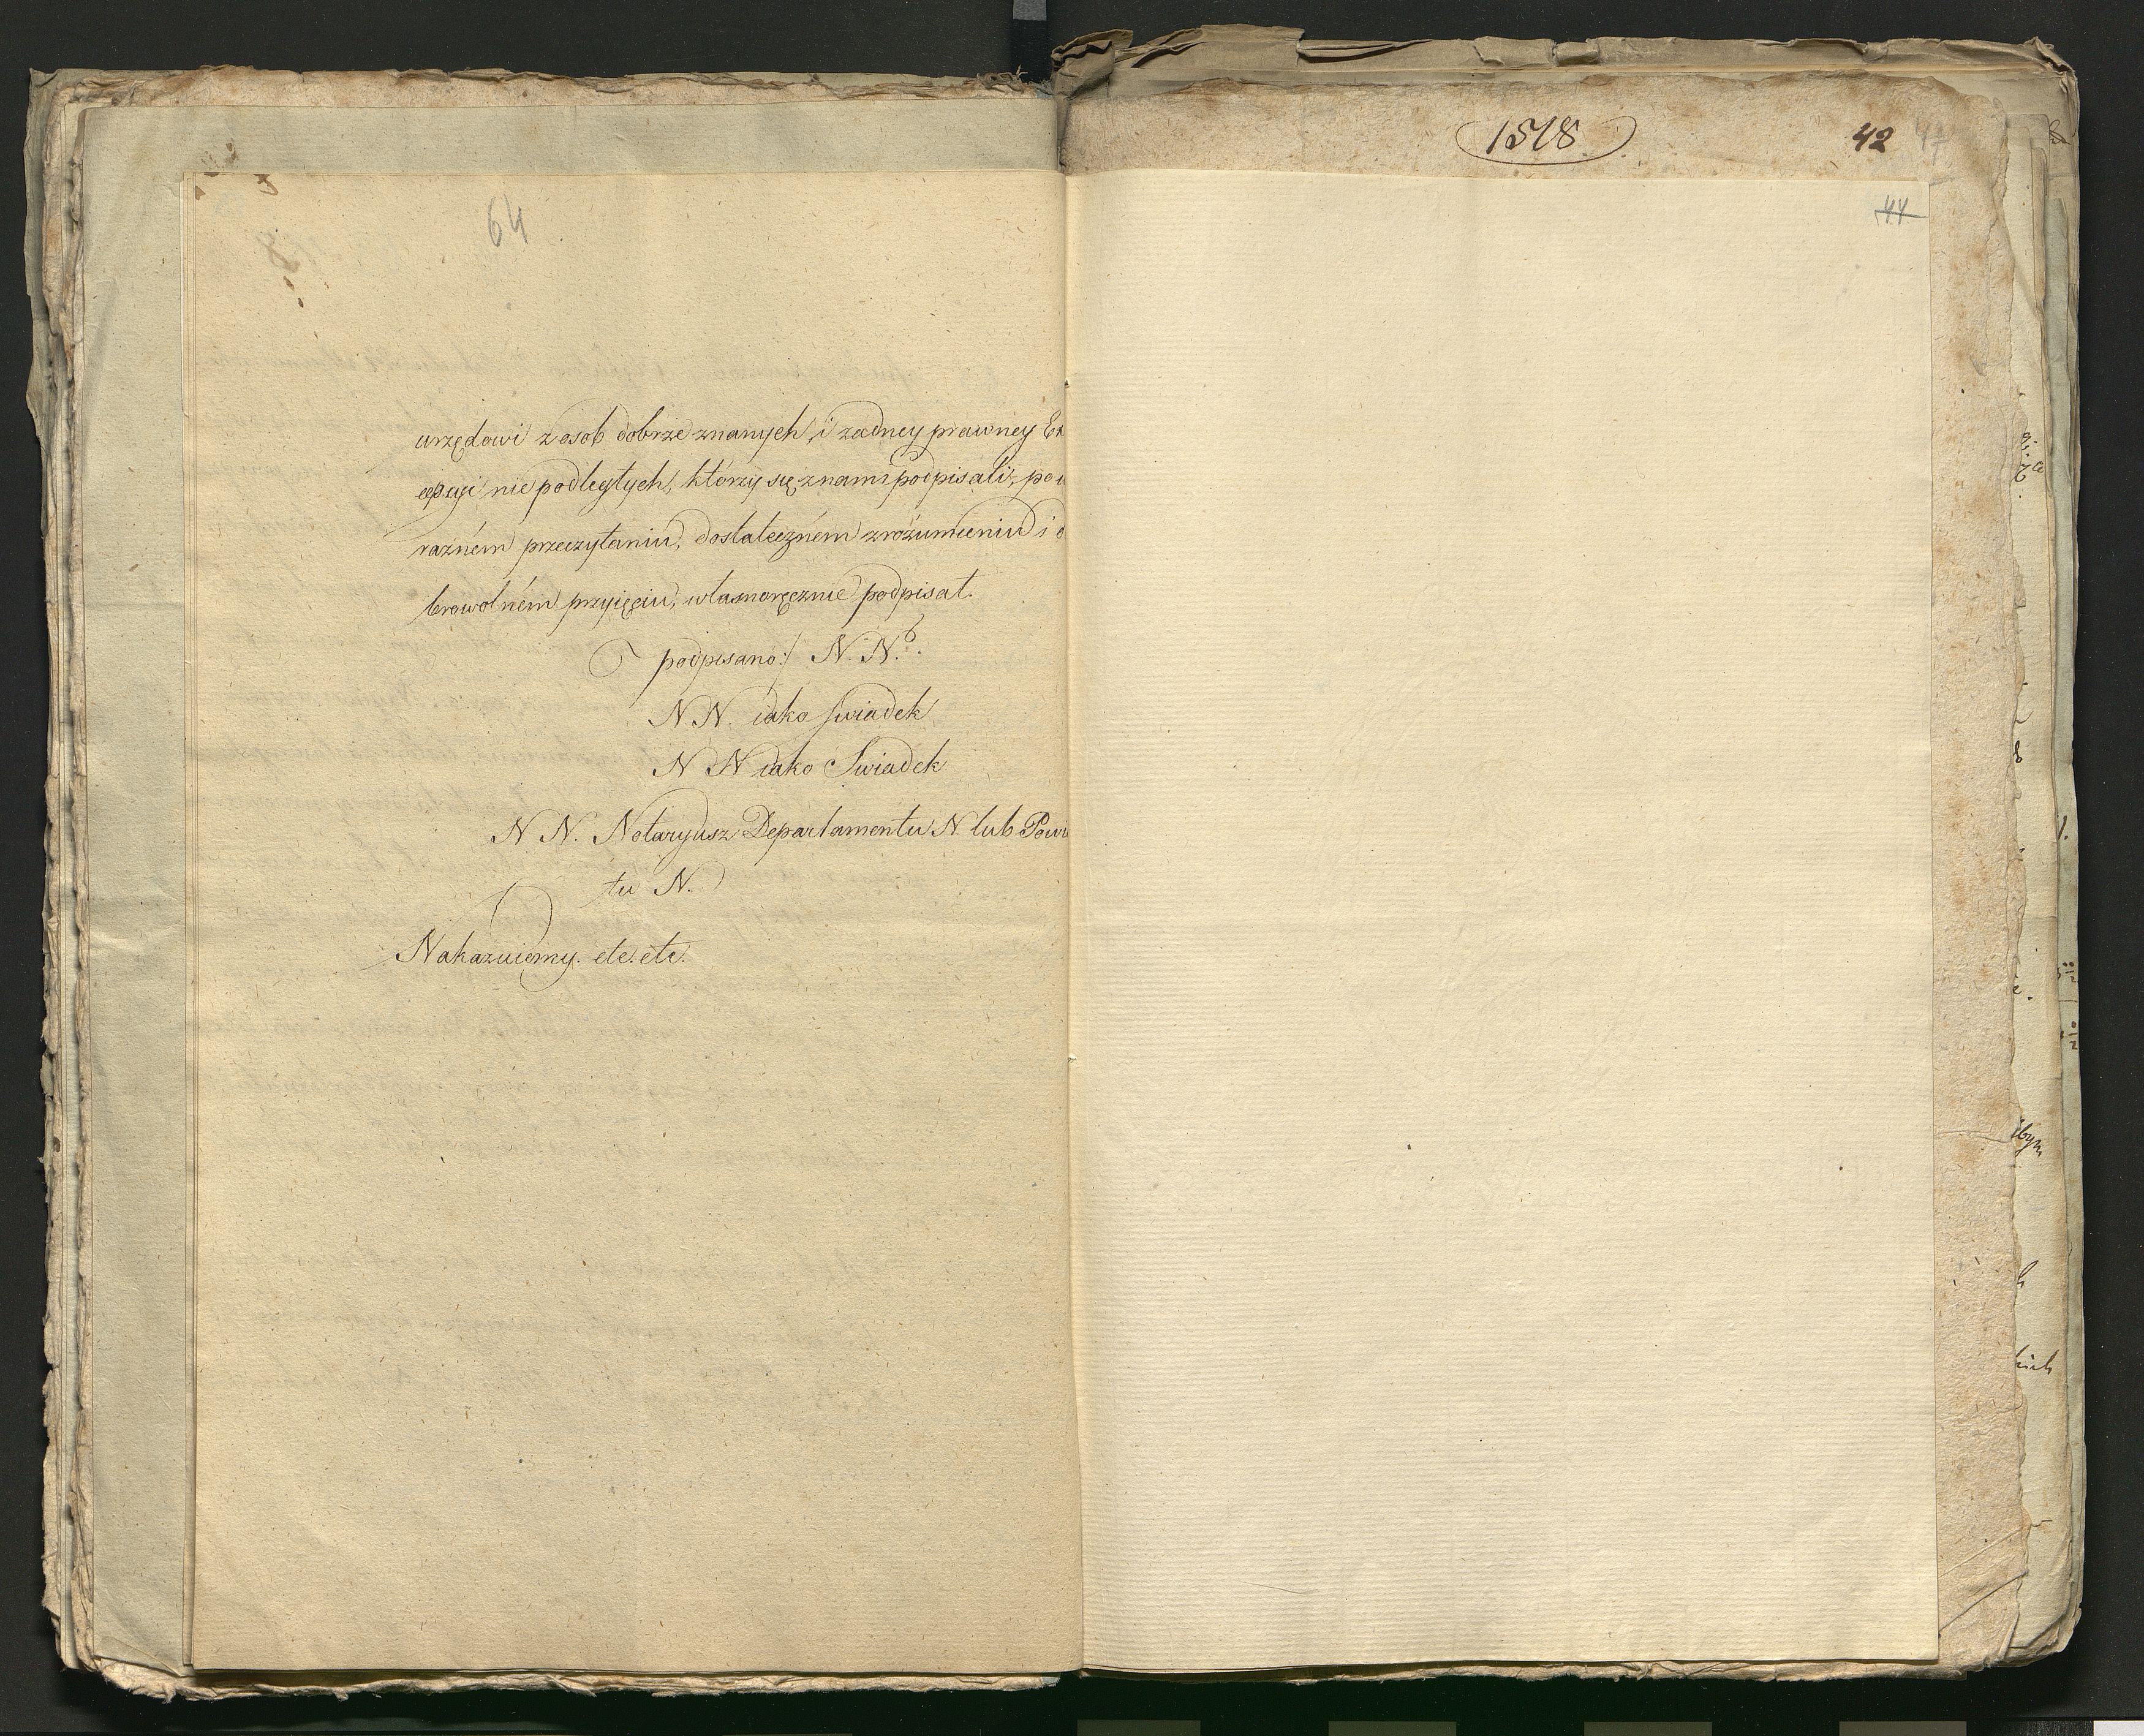 64
urzędowi z osob dobrze znanych, i zadney prawney Ex
cepcyi nie podległych, którzy się z nami podpisali, po
raźném przeczytaniu, dostateczném zrozumieniu i
browolném przyięciu, własnoręcznie podpisał.
podpisano:/ N. N.
N. N. iako swiadek
N N iako Swiadek
N N. Notaryusz Departamentu N. lub Powia
tu N.
Nakazuiemy. etc. etc.
1518
42 47
44